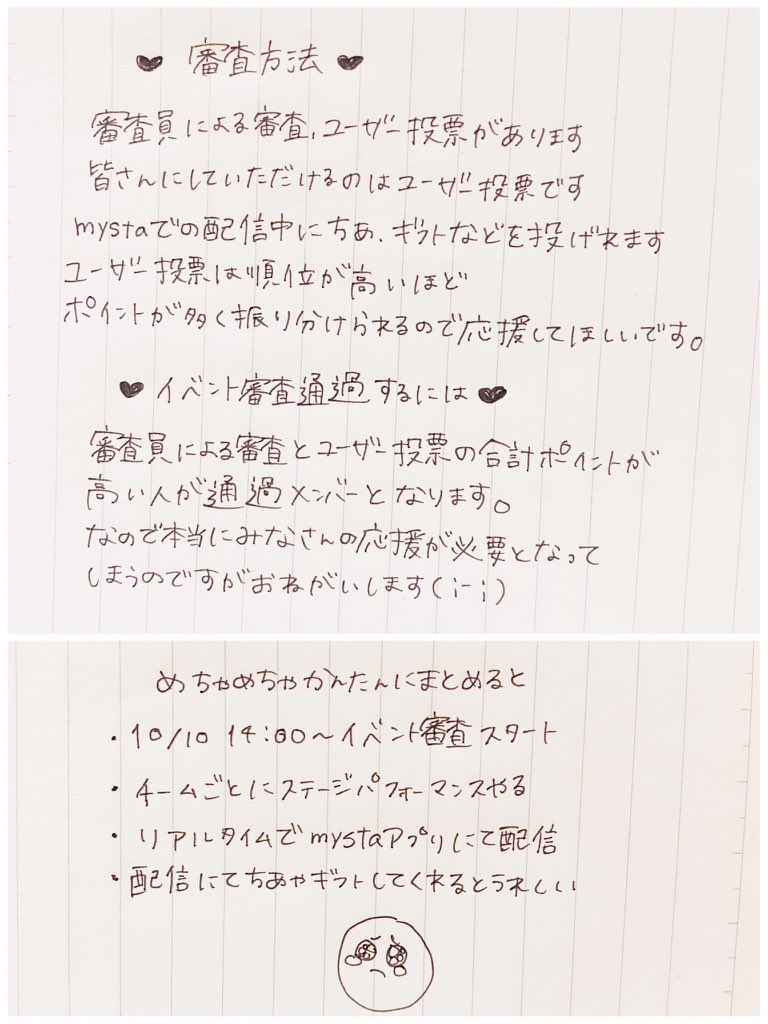 ♥ 審査方法 ♥
審査員による審査、ユーザー投票があります
皆さんにしていただけるのはユーザー投票です
mystaでの配信中にちあ、ギフトなどを投げれます
ユーザー投票は順位が高いほど
ポイントが多く振り分けられるので応援してほしいです。
♥ イベント審査通過するには ♥
審査員による審査とユーザー投票の合計ポイントが
高い人が通過メンバーとなります。
なので本当にみなさんの応援が必要となって
しまうのですがおねがいします(;-;)
めちゃめちゃかんたんにまとめると
・10/10 14:00〜イベント審査スタート
・チームごとにステージパフォーマンスやる
・リアルタイムでmystaアプリにて配信
・配信にてちあやギフトしてくれるとうれしい